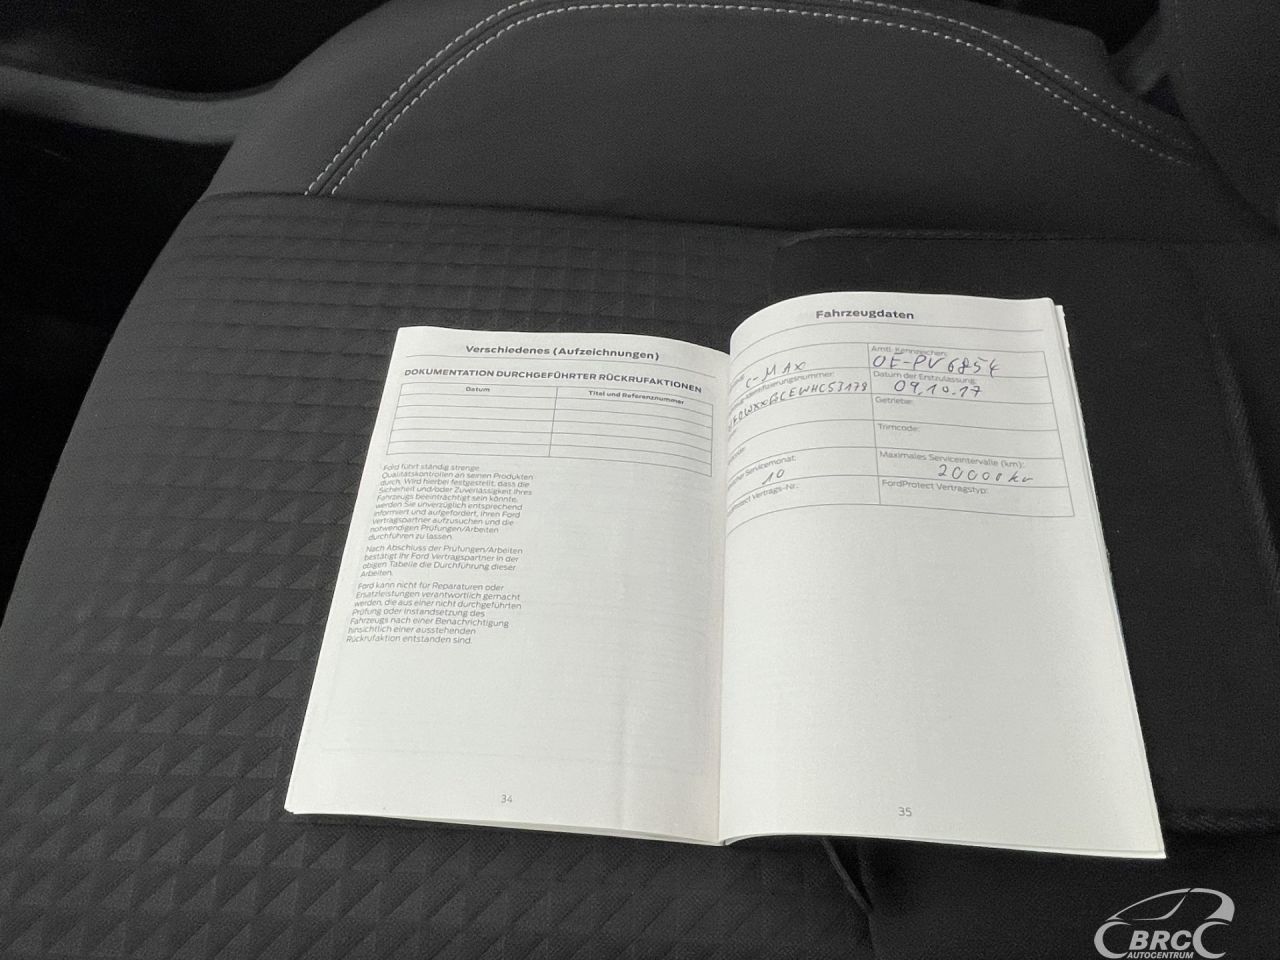 Verschiedenes (Aufzeichnungen)
DOKUMENTATION DURCHGEFÜHRTER RÜCKRUFAKTIONEN
Datum Titel und Referenznummer
Ford führt ständig strenge
Qualitätskontrollen an seinen Produkten
durch. Wird hierbei festgestellt, dass die
Sicherheit und/oder Zuverlässigkeit Ihres
Fahrzeugs beeinträchtigt sein könnte,
werden Sie unverzüglich entsprechend
informiert und aufgefordert, Ihren Ford
Vertragspartner aufzusuchen und die
notwendigen Prüfungen/Arbeiten
durchführen zu lassen.
Nach Abschluss der Prüfungen/Arbeiten
bestätigt Ihr Ford Vertragspartner in der
obigen Tabelle die Durchführung dieser
Arbeiten.
Ford kann nicht für Reparaturen oder
Ersatzleistungen verantwortlich gemacht
werden, die aus einer nicht durchgeführten
Prüfung oder Instandsetzung des
Fahrzeugs nach einer Benachrichtigung
hinsichtlich einer ausstehenden
Rückrufaktion entstanden sind.
34
Fahrzeugdaten
Amtl. Kennzeichen:
C-MAX OF-PV 6854
Datum der Erstzulassung:
09.10.17
Getriebe:
Trimcode:
Servicemonat: Maximales Serviceintervalle (km):
10 20000 km
Vertrags-Nr.: FordProtect Vertragstyp:
35
BRC
AUTOCENTRUM